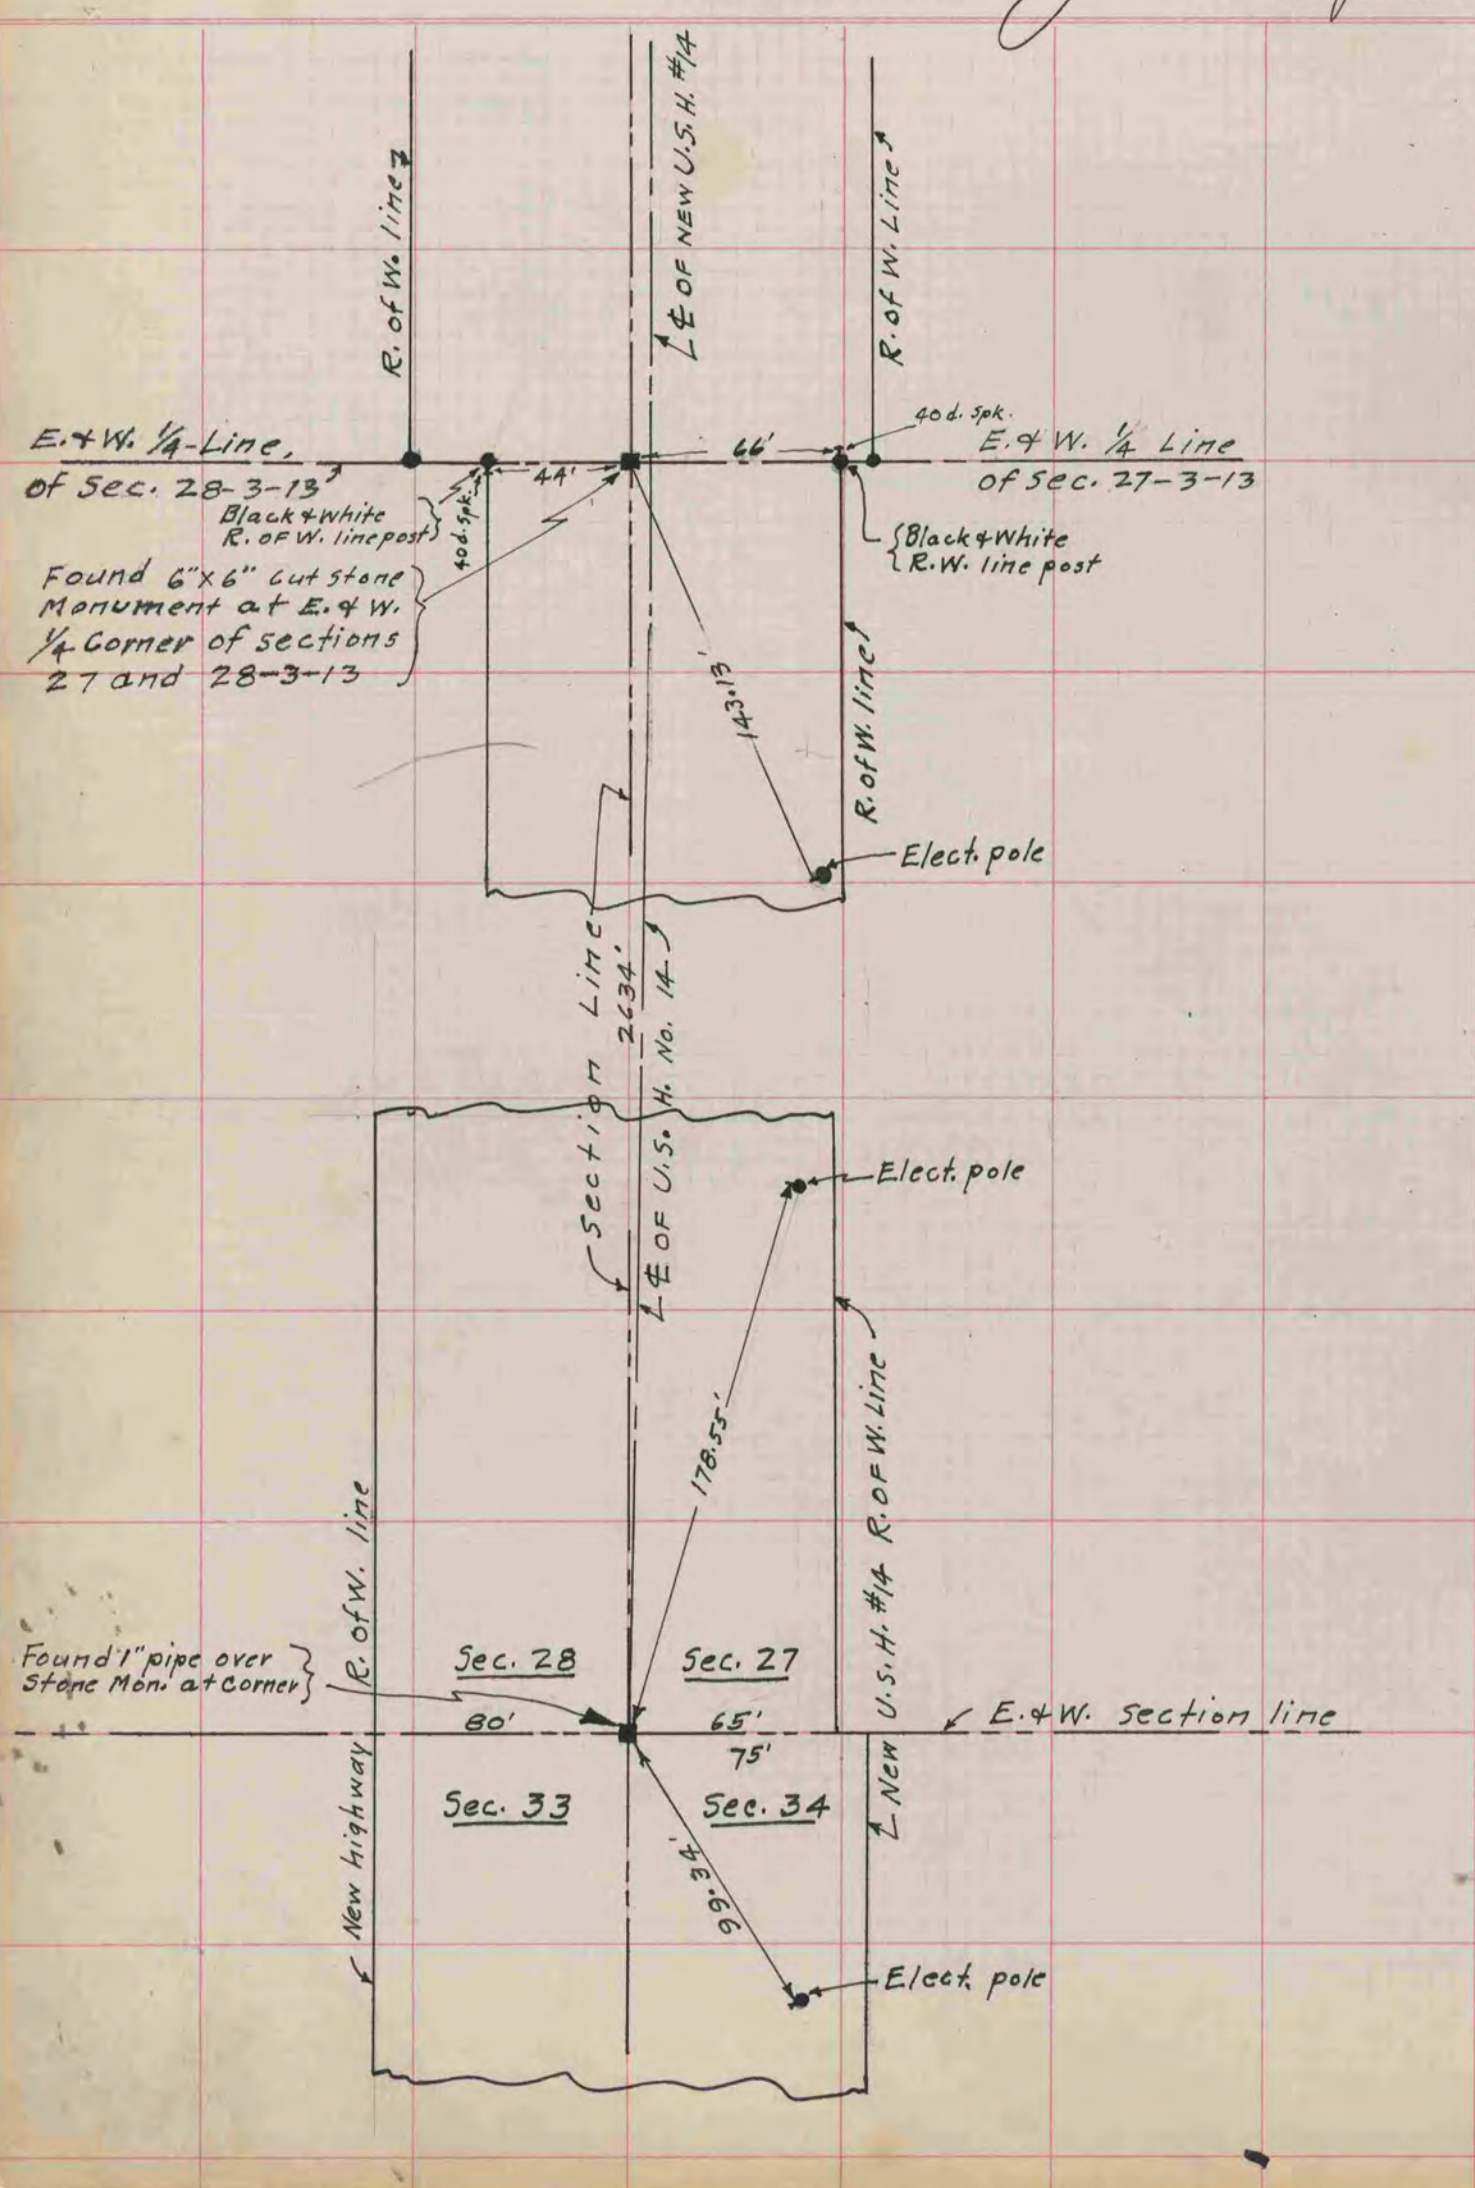 R. of W. line
℄ OF NEW U.S.H. #14
R. of W. Line
40d. Spk.
E. & W. 1/4-Line,
of Sec. 28-3-13
44'
66'
E. & W. 1/4 Line
of Sec. 27-3-13
Black & white
R. OF W. line post
40d. Spk.
{Black & White
R.W. line post
Found 6"x6" Cut Stone
Monument at E. & W.
1/4 Corner of sections
27 and 28-3-13
143.13'
R. of W. line
Elect. pole
Section Line
2634'
℄ OF U.S. H. No. 14
Elect. pole
178.55'
R. of W. line
New highway
New U.S.H. #14 R. OF W. Line
Found 1" pipe over
Stone Mon. at Corner
Sec. 28
Sec. 27
80'
65'
E. & W. section line
75'
Sec. 33
Sec. 34
99.34'
Elect. pole